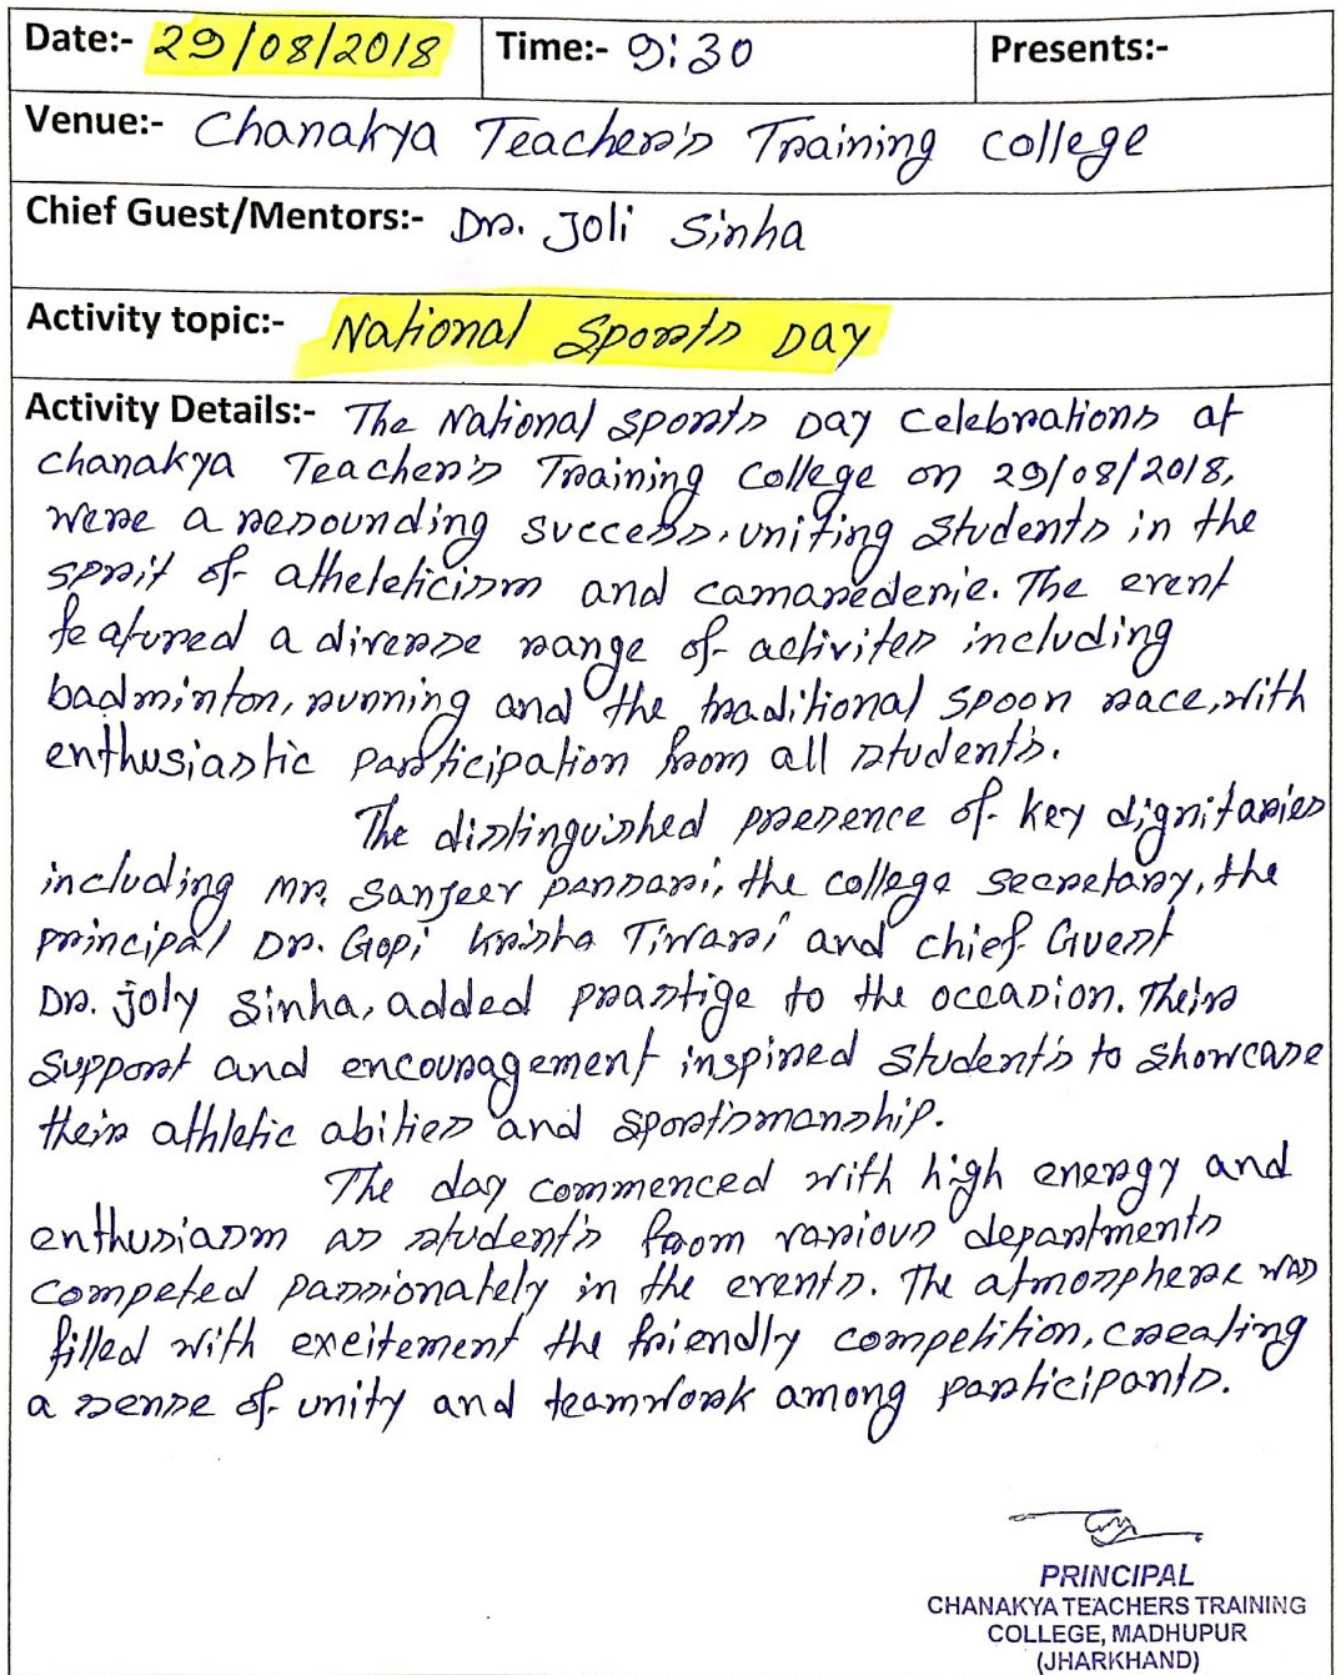 Date:- 29/08/2018 Time:- 9:30 Presents:-
Venue:- Chanakya Teacher's Training college
Chief Guest/Mentors:- Dr. Joli Sinha
Activity topic:- National Sports Day
Activity Details:- The National Sports Day Celebrations at
Chanakya Teacher's Training College on 29/08/2018,
were a resounding success, uniting students in the
sprit of atheleticism and camarederie. The event
featured a diverse range of activites including
badminton, running and the traditional spoon race, with
enthusiastic participation from all student's.
The distinguished presence of key dignitaries
including Mr. Sanjeev Pansari, the college secretary, the
principal Dr. Gopi Krisha Tiwari and chief Guest
Dr. Joly Sinha, added prastige to the occasion. Their
support and encouragement inspired student's to showcase
their athletic abities and sportsmanship.
The day commenced with high energy and
enthusiasm as student's from various departments
competed passionately in the events. The atmosphere was
filled with exeitement the friendly competition, creating
a sense of unity and teamwork among participants.
PRINCIPAL
CHANAKYA TEACHERS TRAINING
COLLEGE, MADHUPUR
(JHARKHAND)